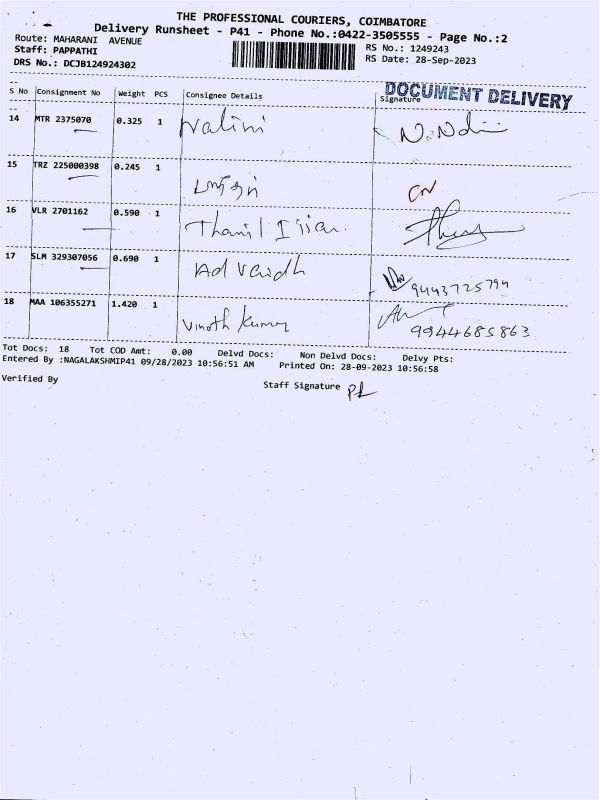 THE PROFESSIONAL COURIERS, COIMBATORE
Delivery Runsheet - P41 - Phone No.:0422-3505555 - Page No.:2
Route: MAHARANI AVENUE
Staff: PAPPATHI
DRS No.: DCJB124924302
RS No.: 1249243
RS Date: 28-Sep-2023
DOCUMENT DELIVERY
S No Consignment No Weight PCS Consignee Details Signature
14 MTR 2375070 0.325 1 Nalini
15 TRZ 225000398 0.245 1
16 VLR 2701162 0.590 1
17 SLM 329307056 0.690 1 9443725794
18 MAA 106355271 1.420 1 Vinoth Kumar 9944685863
Tot Docs: 18 Tot COD Amt: 0.00 Delvd Docs: Non Delvd Docs: Delvy Pts:
Entered By :NAGALAKSHMIP41 09/28/2023 10:56:51 AM Printed On: 28-09-2023 10:56:58
Verified By Staff Signature